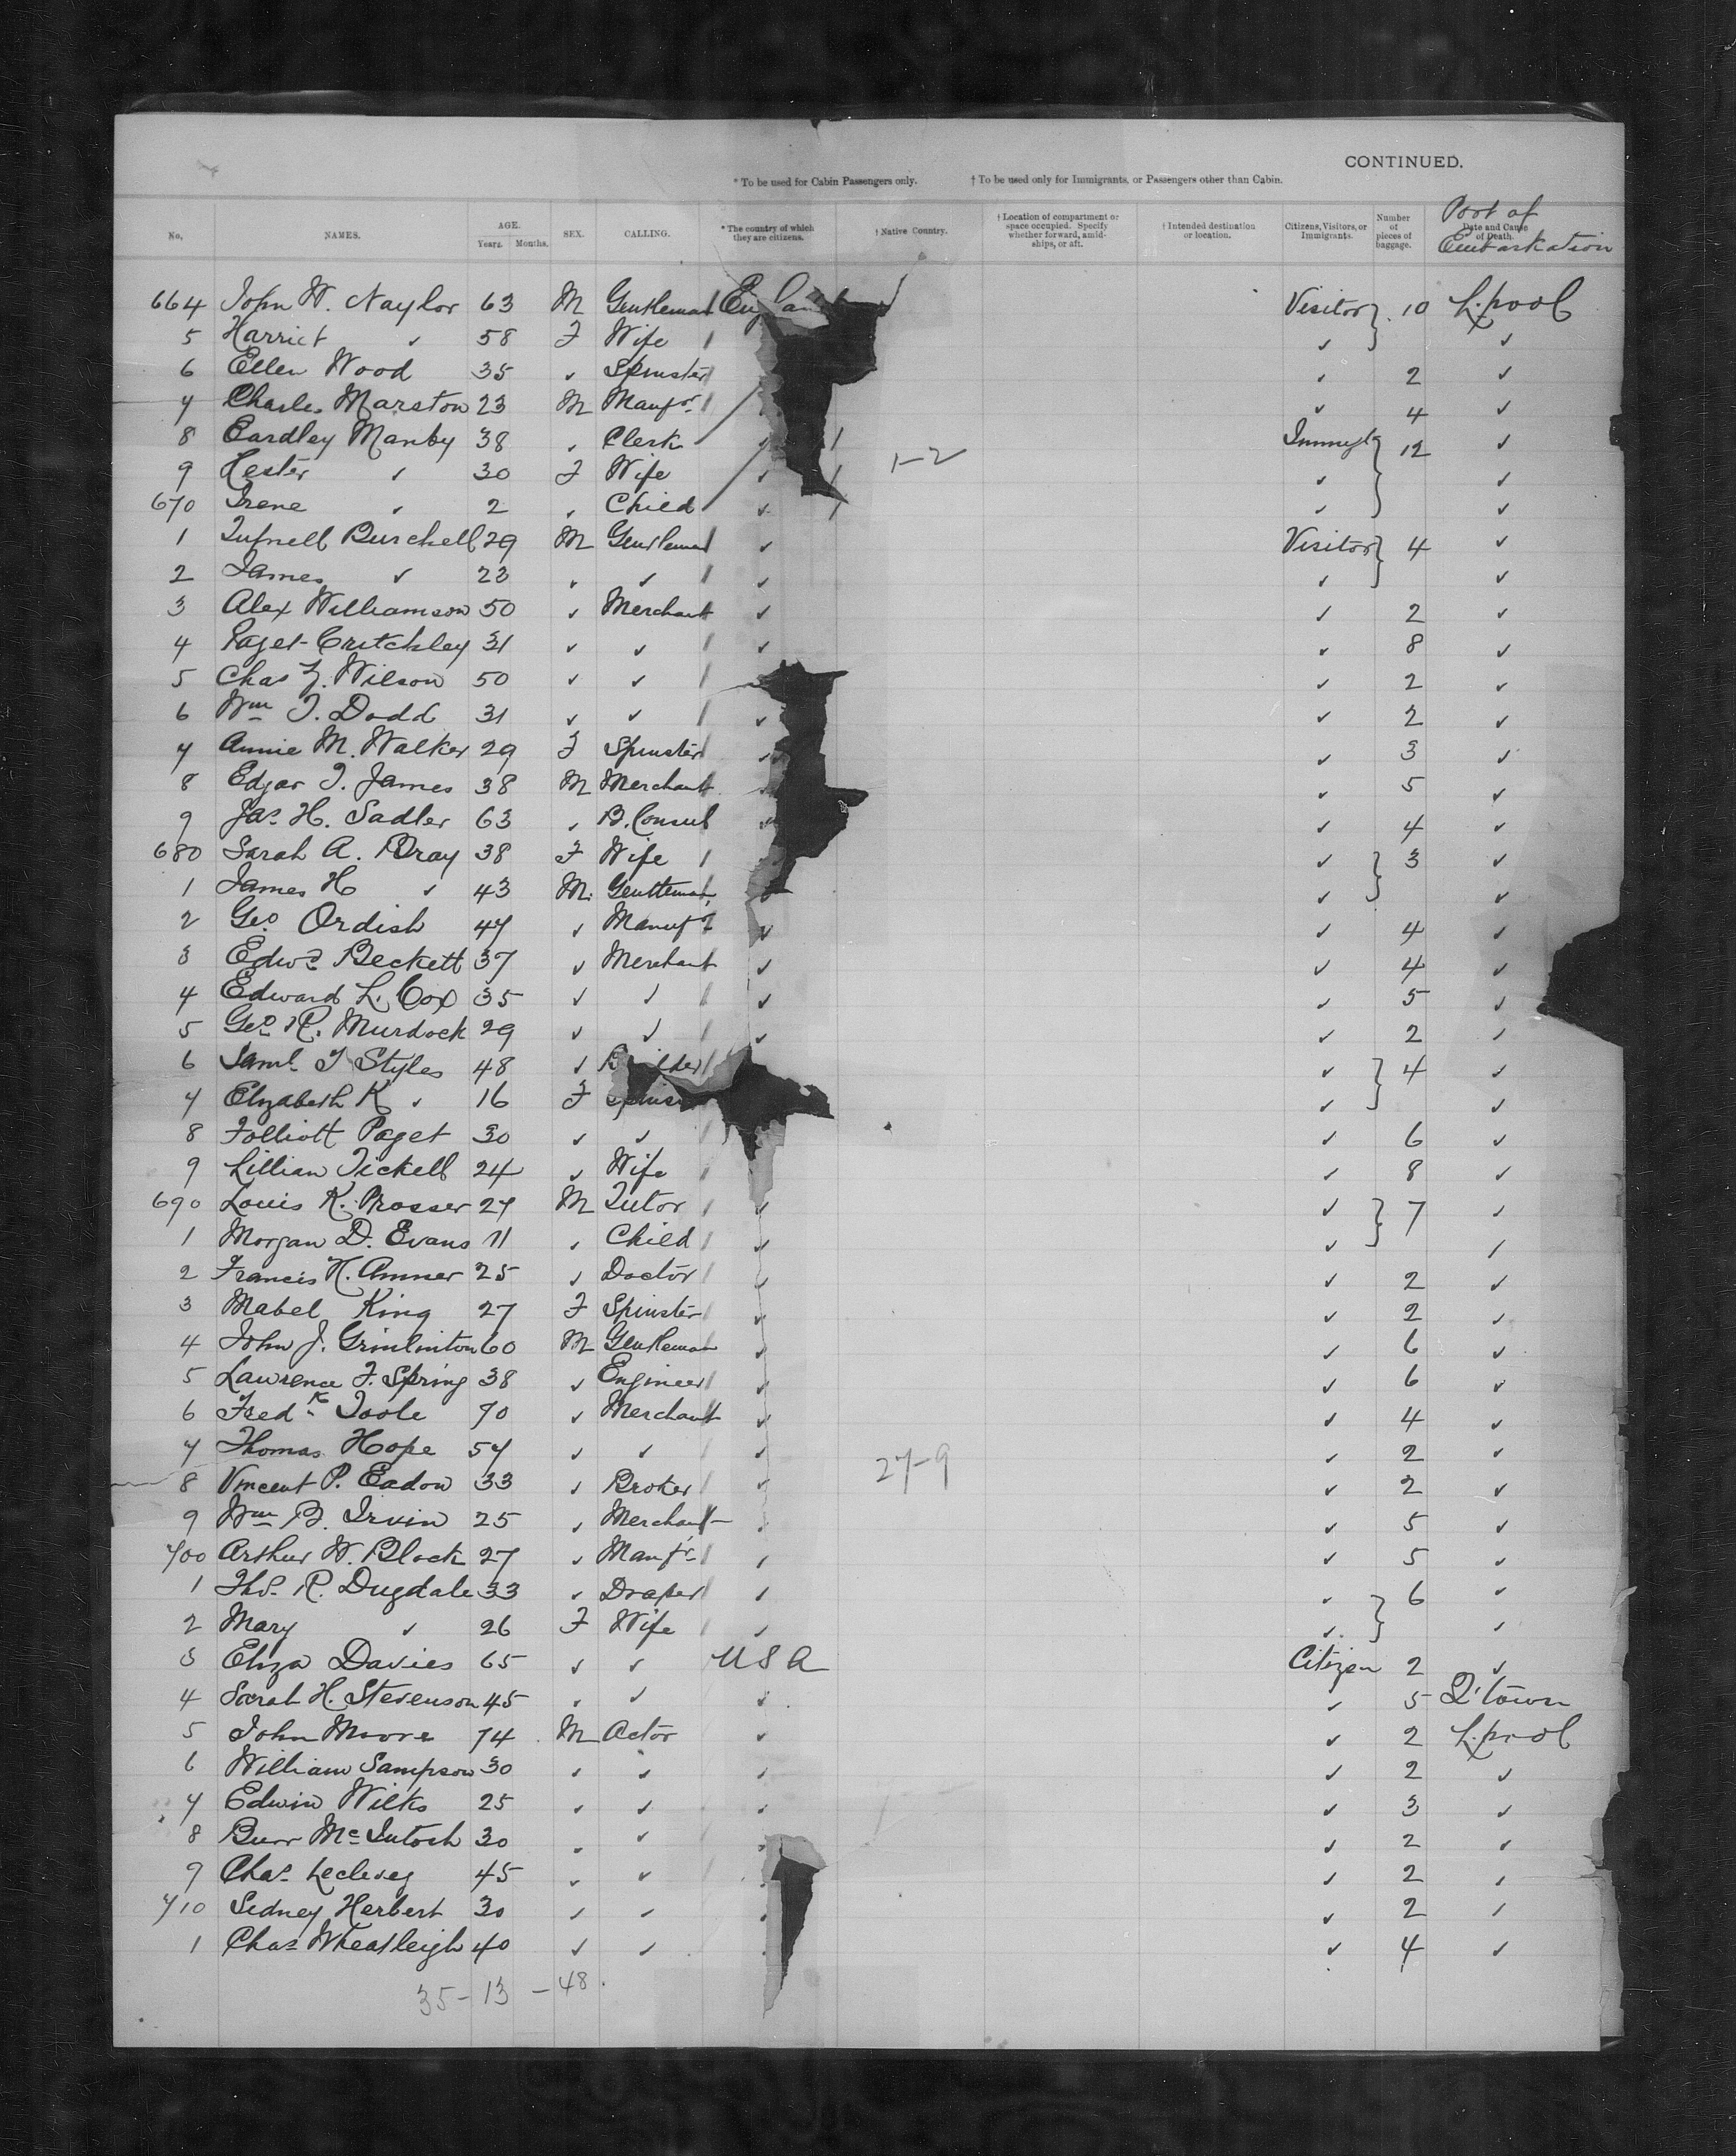 CONTINUED.
* To be used for Cabin Passengers only. † To be used only for Immigrants, or Passengers other than Cabin.
No. NAMES. AGE. Years. Months. SEX. CALLING. * The country of which they are citizens. † Native Country. † Location of compartment or space occupied. Specify whether forward, amidships, or aft. † Intended destination or location. Citizens, Visitors, or Immigrants. Number of pieces of baggage. Date and Cause of Death. Port of Embarkation
664 John W. Naylor 63 M Gentleman England Visitor } 10 L.pool
5 Harriet ✓ 58 F Wife ✓ ✓
6 Ellen Wood 35 ✓ Spinster ✓ 2 ✓
7 Charles Marston 23 M Manfr ✓ 4 ✓
8 Eardley Manby 38 ✓ Clerk ✓ Immigt } 12 ✓
9 Hester ✓ 30 F Wife ✓ 1-2 ✓ ✓
670 Irene ✓ 2 ✓ Child ✓ ✓ ✓
1 Tufnell Burchell 29 M Gentleman ✓ Visitor } 4 ✓
2 James ✓ 23 ✓ ✓ ✓ ✓ ✓
3 Alex Williamson 50 ✓ Merchant ✓ ✓ 2 ✓
4 Paget Critchley 31 ✓ ✓ ✓ ✓ 8 ✓
5 Chas Wilson 50 ✓ ✓ ✓ 2 ✓
6 Wm T. Dodd 31 ✓ ✓ ✓ ✓ 2 ✓
7 Annie M. Walker 29 F Spinster ✓ ✓ 3 ✓
8 Edgar T. James 38 M Merchant ✓ ✓ 5 ✓
9 Jas. H. Sadler 63 ✓ B. Consul ✓ ✓ 4 ✓
680 Sarah A. Bray 38 F Wife ✓ } 3 ✓
1 James H ✓ 43 M. Gentleman ✓ ✓
2 Geo. Ordish 47 ✓ Manufr ✓ ✓ 4 ✓
3 Edwd Beckett 37 ✓ Merchant ✓ ✓ 4 ✓
4 Edward L. Cox 35 ✓ ✓ ✓ ✓ 5 ✓
5 Geo R. Murdock 29 ✓ ✓ ✓ ✓ 2 ✓
6 Saml T Styles 48 ✓ ✓ } 4 ✓
7 Elizabeth K ✓ 16 F ✓ ✓
8 Folliott Paget 30 ✓ ✓ ✓ 6 ✓
9 Lillian Tickell 24 ✓ Wife ✓ 8 ✓
690 Louis K. Prosser 27 M Tutor ✓ ✓ } 7 ✓
1 Morgan D. Evans 11 ✓ Child ✓ ✓ ✓
2 Francis H. Amner 25 ✓ Doctor ✓ ✓ 2 ✓
3 Mabel King 27 F Spinster ✓ ✓ 2 ✓
4 John J. Grinlinton 60 M Gentleman ✓ ✓ 6 ✓
5 Lawrence F. Spring 38 ✓ Engineer ✓ ✓ 6 ✓
6 Fredk Toole 70 ✓ Merchant ✓ ✓ 4 ✓
7 Thomas Hope 57 ✓ ✓ ✓ ✓ 2 ✓
8 Vincent P. Eadon 33 ✓ Broker ✓ 27-9 ✓ 2 ✓
9 Wm B. Irvin 25 ✓ Merchant ✓ ✓ 5 ✓
700 Arthur W. Block 27 ✓ Manfr ✓ ✓ 5 ✓
1 Thos. R. Dugdale 33 ✓ Draper ✓ ✓ } 6 ✓
2 Mary ✓ 26 F Wife ✓ ✓ ✓
3 Eliza Davies 65 ✓ ✓ U S A Citizen 2 ✓
4 Sarah H. Stevenson 45 ✓ ✓ ✓ ✓ 5 Q'town
5 John Moore 74 M Actor ✓ ✓ 2 L.pool
6 William Sampson 30 ✓ ✓ ✓ ✓ 2 ✓
7 Edwin Wilks 25 ✓ ✓ ✓ ✓ 3 ✓
8 Burr McIntosh 30 ✓ ✓ ✓ 2 ✓
9 Chas. Leclercq 45 ✓ ✓ ✓ ✓ 2 ✓
710 Sidney Herbert 30 ✓ ✓ ✓ ✓ 2 ✓
1 Chas Wheatleigh 40 ✓ ✓ ✓ ✓ 4 ✓
35 - 13 - 48.